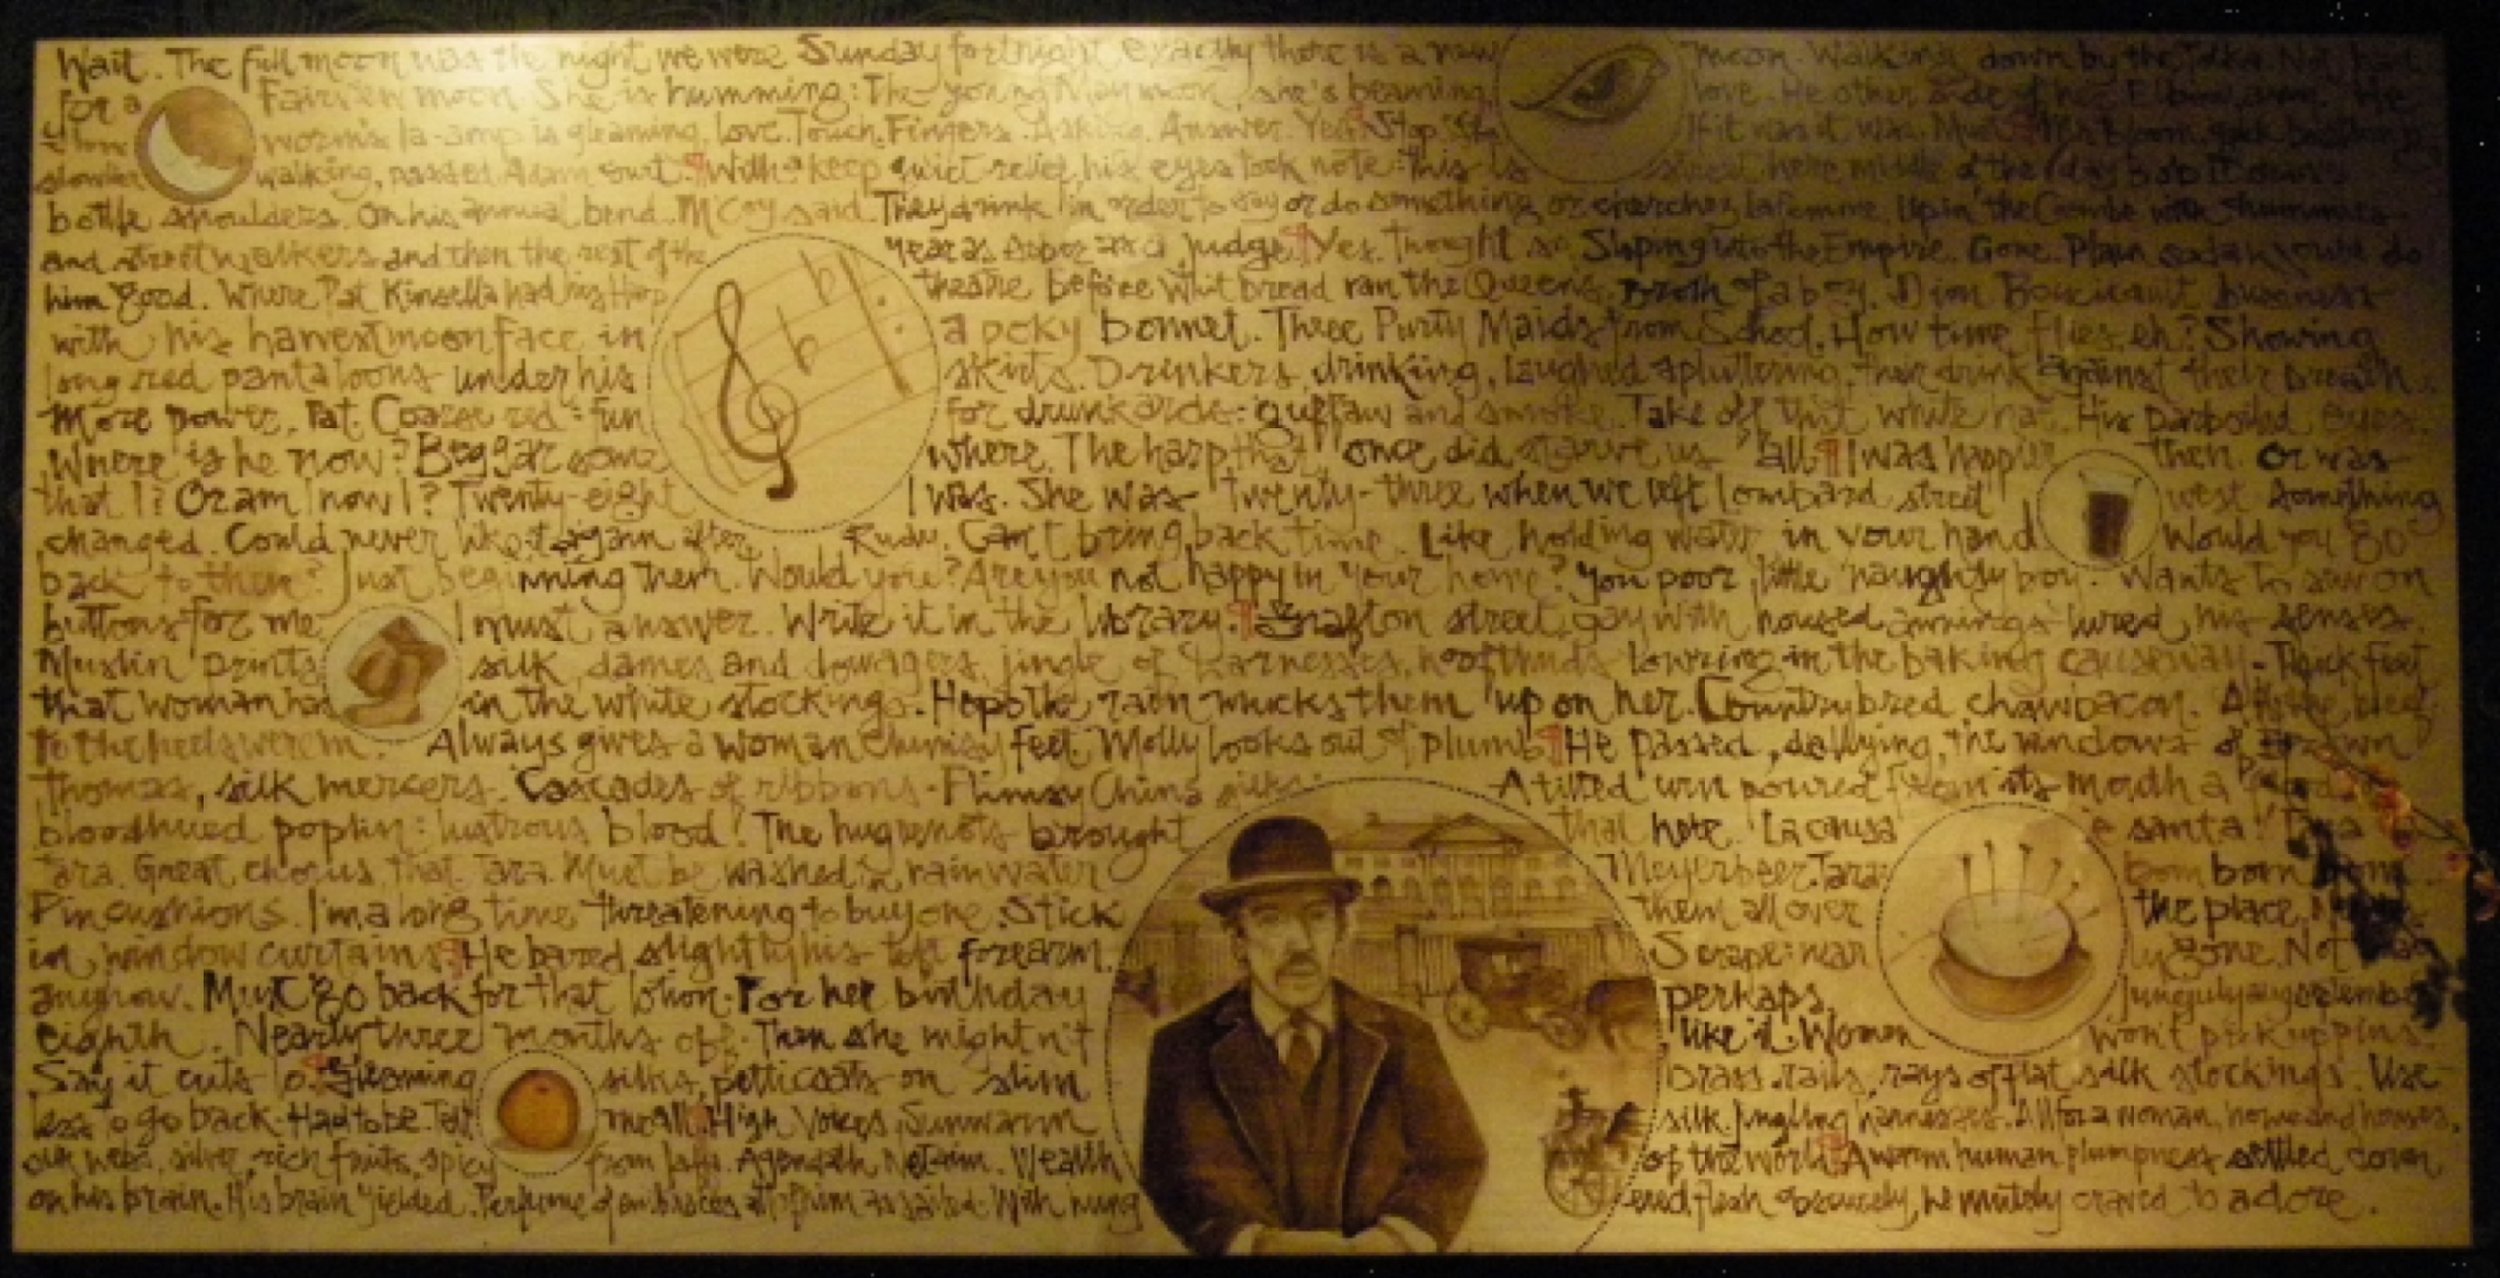 Wait. The full moon was the night we were Sunday fortnight exactly there is a new moon. Walking down by the Tolka. Not bad
for a Fairview moon. She is humming: The young May moon she's beaming, love. He other side of her. Elbow, arm. He
Glow worm's la-amp is gleaming, love. Touch. Fingers. Asking. Answer. Yes. ¶ Stop. Stop. If it was it was. Must. ¶ Mr Bloom, quick breathing,
slowlier walking, passed Adam court. ¶ With a keep quiet relief, his eyes took note: this is street here middle of the day Bob Doran's
bottle shoulders. On his annual bend, M'Coy said. They drink in order to say or do something or cherchez la femme. Up in the Coombe with chummies
and streetwalkers and then the rest of the year as sober as a judge. ¶ Yes. Thought so. Sloping into the Empire. Gone. Plain soda would do
him good. Where Pat Kinsella had his Harp theatre before Whitbread ran the Queen's. Broth of a boy. Dion Boucicault business
with his harvestmoon face in a poky bonnet. Three Purty Maids from School. How time flies, eh? Showing
long red pantaloons under his skirts. Drinkers, drinking, laughed spluttering, their drink against their breath.
More power, Pat. Coarse red: fun for drunkards: guffaw and smoke. Take off that white hat. His parboiled eyes.
Where is he now? Beggar somewhere. The harp that once did starve us all. ¶ I was happier then. Or was
that I? Or am I now I? Twenty-eight I was. She was twenty-three when we left Lombard street west something
changed. Could never like it again after Rudy. Can't bring back time. Like holding water in your hand. Would you go
back to then? Just beginning then. Would you? Are you not happy in your home? You poor little naughty boy. Wants to sew on
buttons for me. I must answer. Write it in the library. ¶ Grafton street gay with housed awnings lured his senses.
Muslin prints silk, dames and dowagers, jingle of harnesses, hoofthuds lowringing in the baking causeway. Thick feet
that woman has in the white stockings. Hope the rain mucks them up on her. Countrybred chawbacon. All the beef
to the heels were in. Always gives a woman clumsy feet. Molly looks out of plumb. ¶ He passed, dallying, the windows of Brown
Thomas, silk mercers. Cascades of ribbons. Flimsy China silks. A tilted urn poured from its mouth a flood of
bloodhued poplin: lustrous blood! The huguenots brought that here. La causa è santa! Tara
tara. Great chorus that. Tara. Must be washed in rainwater. Meyerbeer. Tara: bom bom bom.
Pincushions. I'm a long time threatening to buy one. Stick them all over the place. Needles
in window curtains. ¶ He bared slightly his left forearm. Scrape: nearly gone. Not today
anyhow. Must go back for that lotion. For her birthday perhaps. Junejulyaugseptember
eighth. Nearly three months off. Then she mightn't like it. Women won't pick up pins.
Say it cuts lo. ¶ Gleaming silks, petticoats on slim brass rails, rays of flat silk stockings. Use-
less to go back. Had to be. Tell me all. ¶ High voices. Sunwarm silk. Jingling harnesses. All for a woman, home and houses,
silk webs, silver, rich fruits, spicy from Jaffa. Agendath Netaim. Wealth of the world. ¶ A warm human plumpness settled down
on his brain. His brain yielded. Perfume of embraces all of him assailed. With hungered flesh obscurely, he mutely craved to adore.